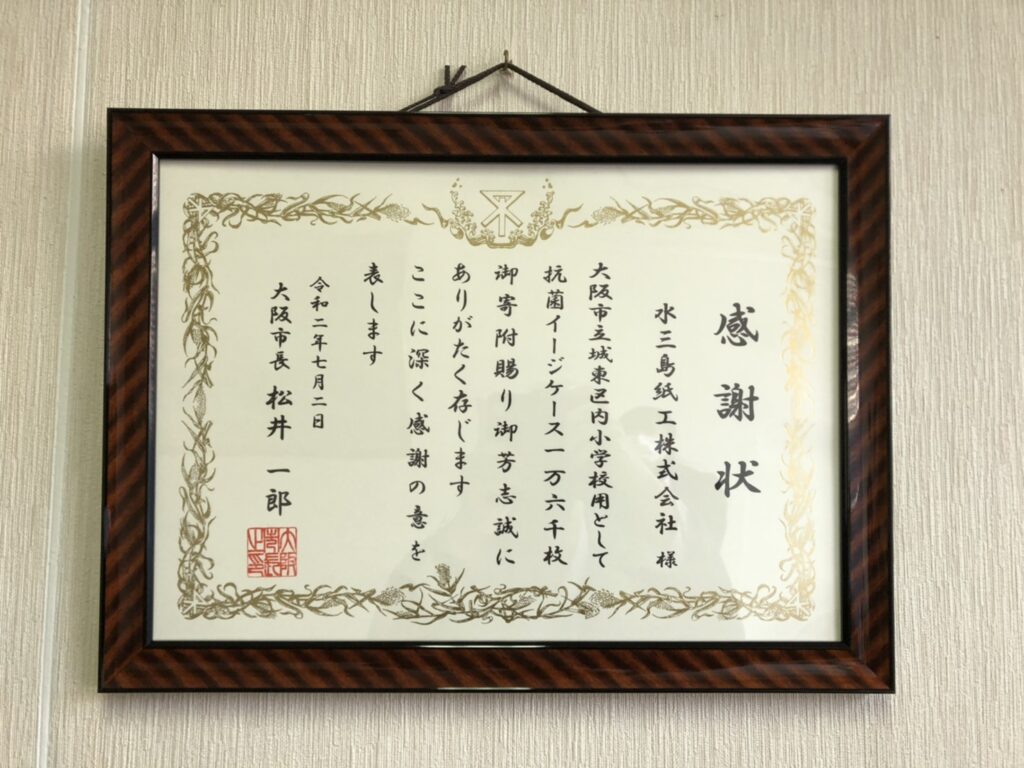 感謝状
水三島紙工株式会社 様
大阪市立城東区内小学校用として
抗菌イージケース一万六千枚
御寄附賜り御芳志誠に
ありがたく存じます
ここに深く感謝の意を
表します
令和二年七月二日
大阪市長 松井 一郎
大阪市長之印